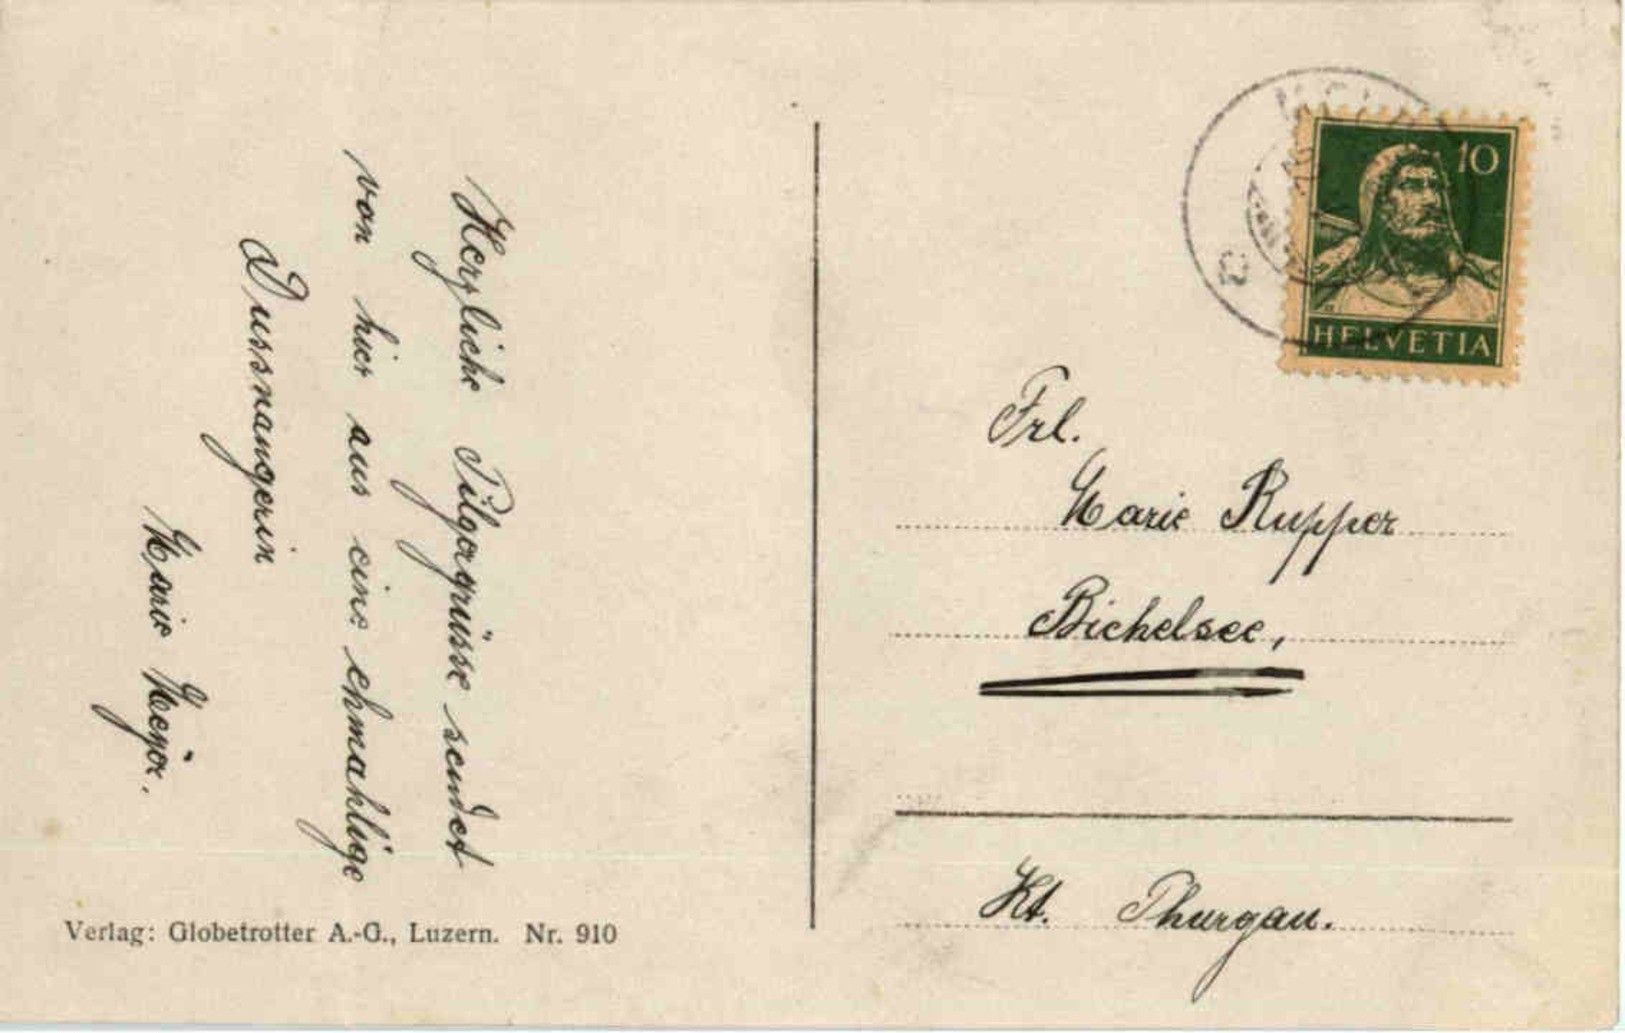 Herzliche Pilgergrüsse sendet
von hier aus eine ehmahlige
Dussnangerin
Marie Meyer.
Verlag: Globetrotter A.-G., Luzern. Nr. 910
10
HELVETIA
Frl.
Marie Rupper
Bichelsee,
Kt. Thurgau.